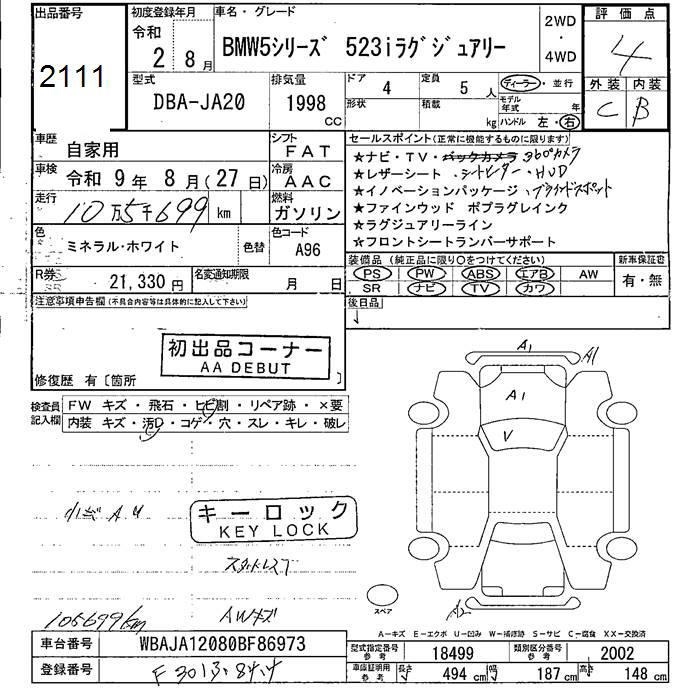 出品番号
2111
初度登録年月
令和
2 8月
車名・グレード
BMW5シリーズ 523iラグジュアリー
2WD
・
4WD
評価点
4
外装 内装
C B
型式
DBA-JA20
排気量
1998
cc
ドア
4
定員
5 人
形状
積載
kg
ディーラー・並行
モデル年式 年
ハンドル 左・右
車歴
自家用
シフト
FAT
車検
令和 9年 8月(27日)
冷房
AAC
走行
10万5千699 km
燃料
ガソリン
色
ミネラル・ホワイト
色替
色コード
A96
R券
SR
21,330円
名変通知期限
月 日
セールスポイント(正常に機能するものに限ります)
★ナビ・TV・バックカメラ 360°カメラ
★レザーシート・シートヒーター・HUD
★イノベーションパッケージ・ブラインドスポット
★ファインウッド ポプラグレインク
★ラグジュアリーライン
★フロントシートランバーサポート
装備品(純正品に限り○をつけてください)
PS PW ABS エアB AW
SR ナビ TV カワ
新車保証書
有・無
後日品
注意事項申告欄(不具合内容等は具体的に記入して下さい)
初出品コーナー
AA DEBUT
修復歴 有〔箇所 〕
検査員
記入欄
FW キズ・飛石・ヒビ割・リペア跡・×要
内装 キズ・汚レ・コゲ・穴・スレ・キレ・破レ
小キズ A U
キーロック
KEY LOCK
スタッドレス
105699km
AWキズ
A1
A1
A1
V
A2
スペア
A-キズ E-エクボ U-凹み W-補修跡 S-サビ C-腐食 XX-交換済
車台番号
WBAJA12080BF86973
登録番号
型式指定番号
参考
18499
類別区分番号
参考
2002
車庫証明用
参考
長さ 494 cm
幅 187 cm
高さ 148 cm